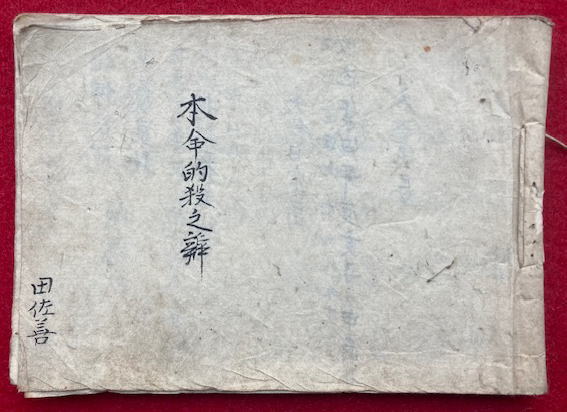 本命的殺之辨
田佐善